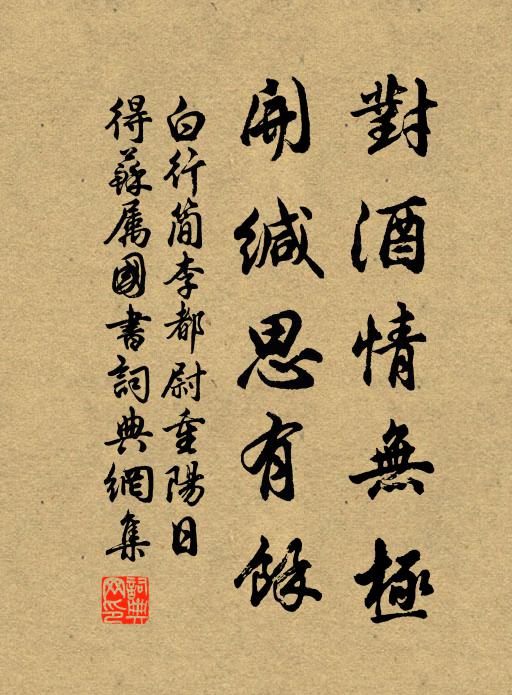 對酒情無極
開緘思有餘
白行簡李都尉重陽日
得蘇属國書詞典網集
詞典
网印